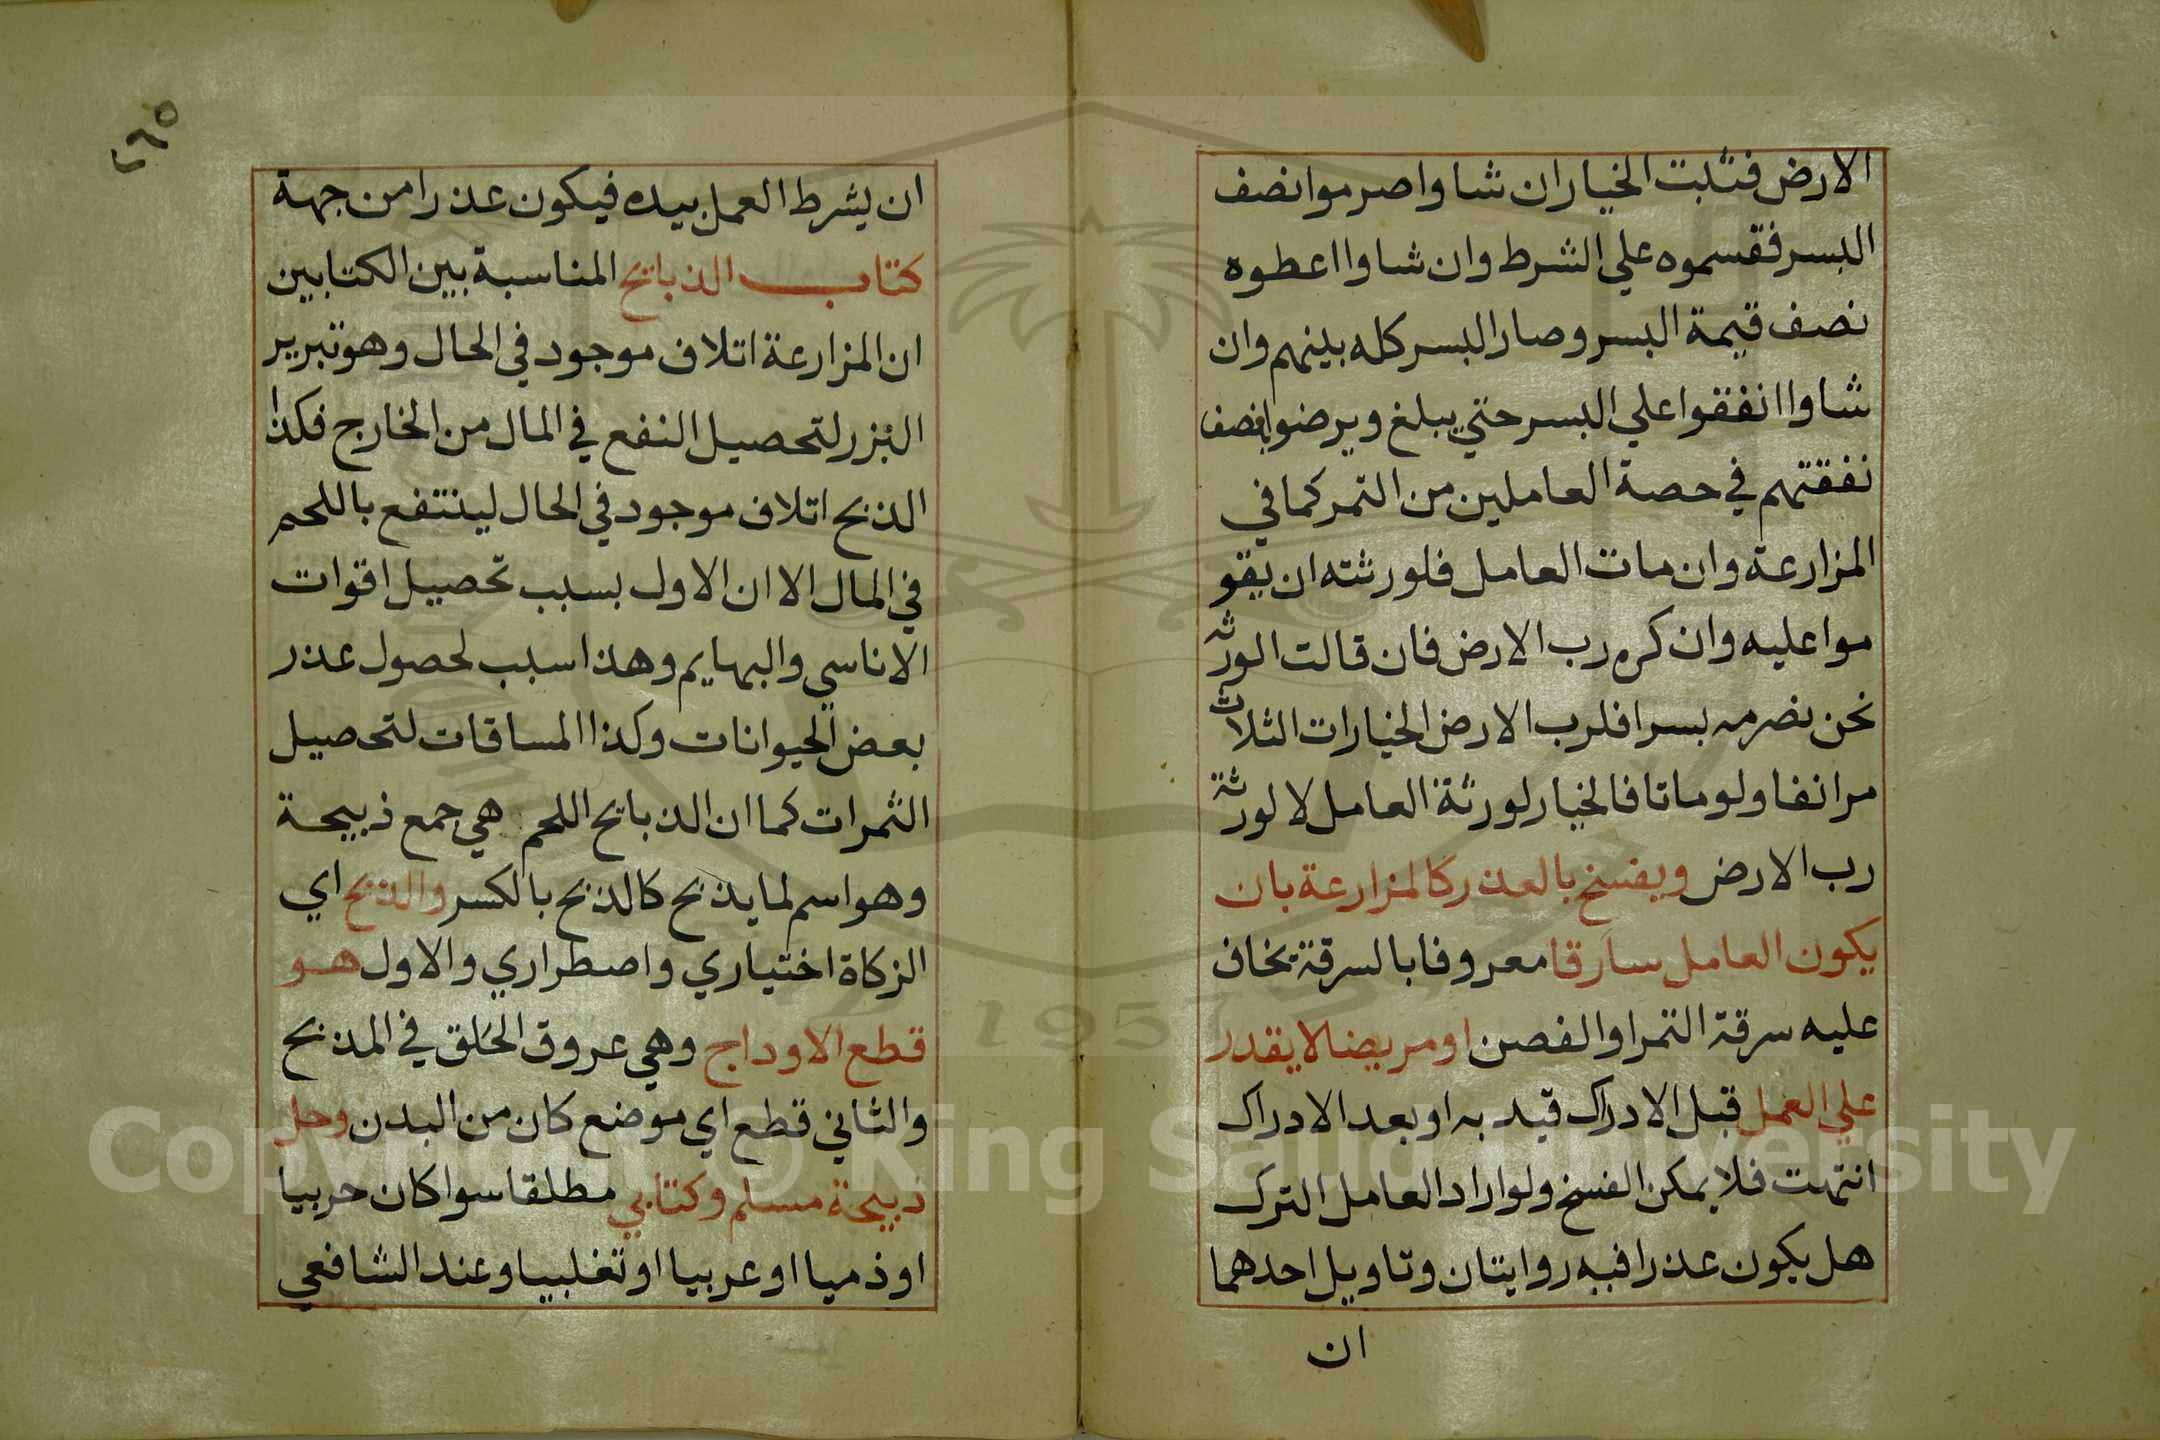 الارض فتثبت الخيار ان شاوا صرموا نصف
البسر فقسموه علي الشرط وان شاوا اعطوه
نصف قيمة البسر وصار البسر كله بينهم وان
شاوا انفقوا علي البسر حتي يبلغ ويرضوا بنصف
نفقتهم في حصة العاملين من التمر كما في
المزارعة وان مات العامل فلورثته ان يقو
موا عليه وان كره رب الارض فان قالت الورثة
نحن نصرمه بسرا فلرب الارض الخيارات الثلاث
مر انفا ولو ماتا فالخيار لورثة العامل لا لورثة
رب الارض ويفسخ بالعذر كالمزارعة بان
يكون العامل سارقا معروفا بالسرقة يخاف
عليه سرقة التمر او الغصن او مريضا لا يقدر
علي العمل قبل الادراك قيد به او بعد الادراك
انتهت فلا يمكن الفسخ ولو اراد العامل الترك
هل يكون عذرا فيه روايتان وتاويل احدهما
ان
٤٦٥
ان يشرط العمل بيده فيكون عذرا من جهة
كتاب الذبائح المناسبة بين الكتابين
ان المزارعة اتلاف موجود في الحال وهو تبرير
البزر لتحصيل النفع في المال من الخارج فكذا
الذبح اتلاف موجود في الحال لينتفع باللحم
في المال الا ان الاول بسبب تحصيل اقوات
الاناسي والبهايم وهذا سبب لحصول عذر
بعض الحيوانات وكذا المساقات لتحصيل
الثمرات كما ان الذبائح اللحم هي جمع ذبيحة
وهو اسم لما يذبح كالذبح بالكسر والذبح اي
الزكاة اختياري واصطراري والاول هو
قطع الاوداج وهي عروق الحلق في المذبح
والثاني قطع اي موضع كان من البدن وحل
ذبيحة مسلم وكتابي مطلقا سوا كان حربيا
او ذميا او عربيا او تغلبيا وعند الشافعي
1957
Copyright © King Saud University